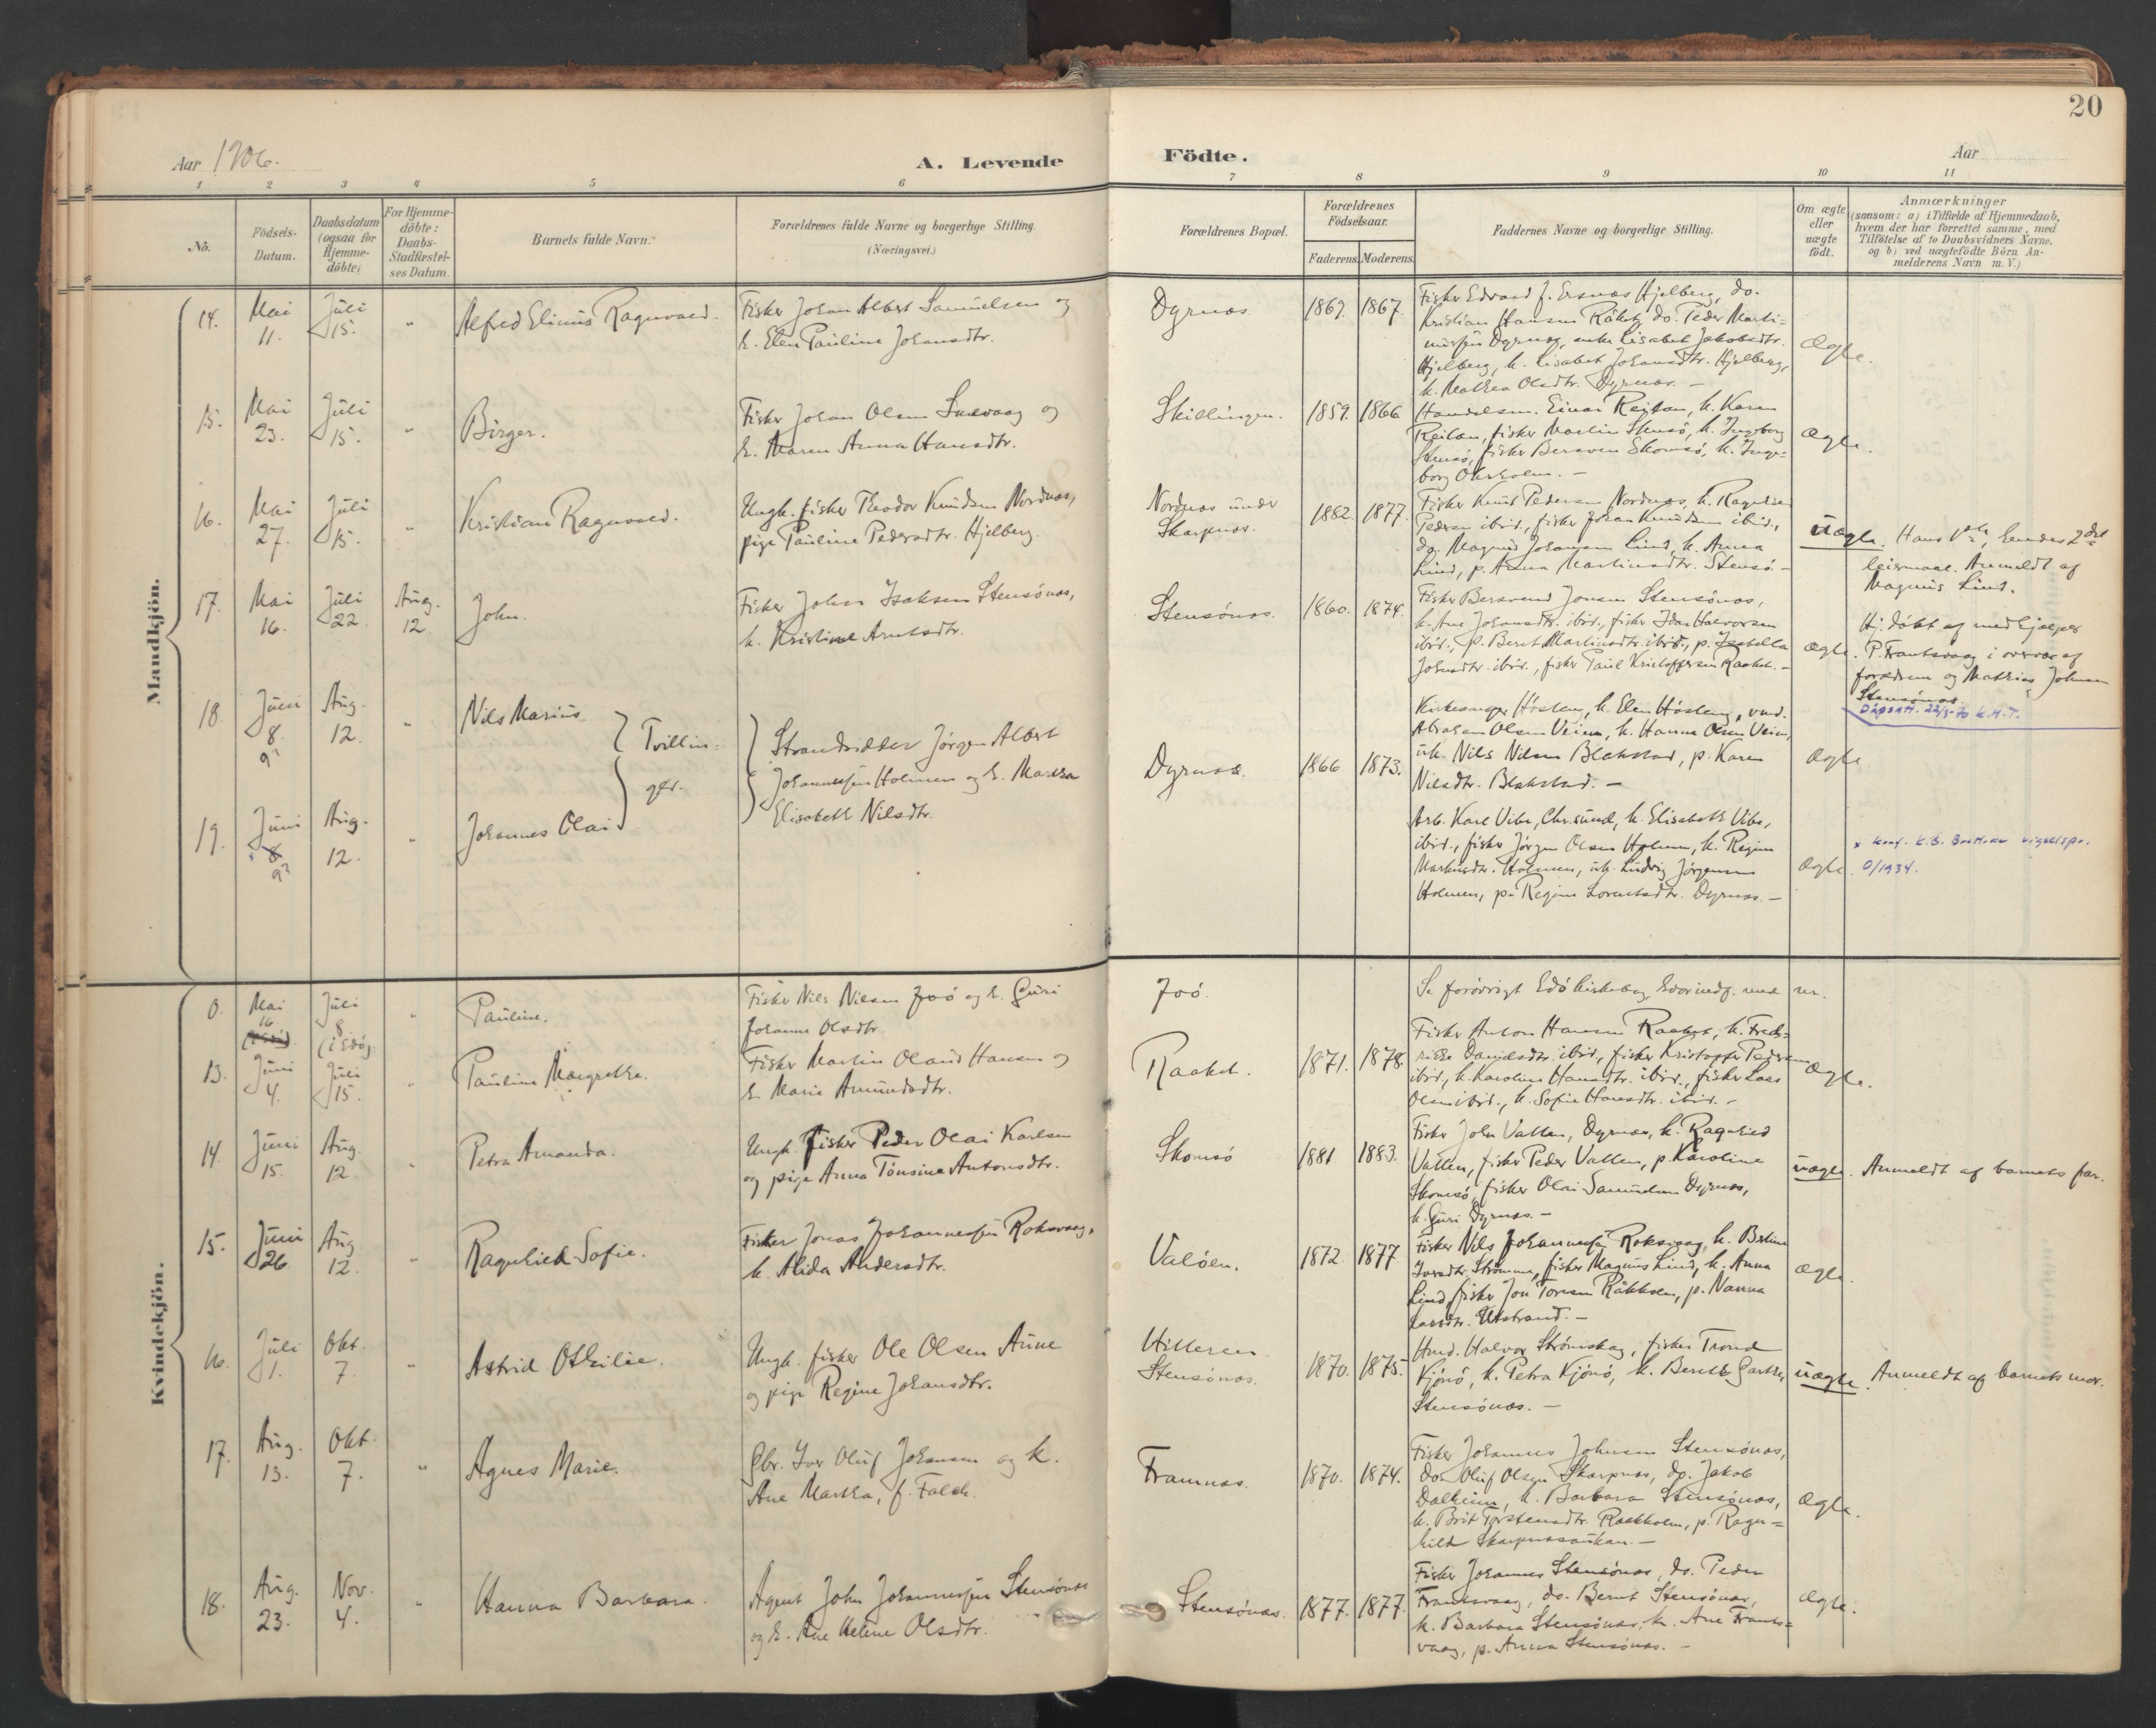 20
Aar 1906.
A. Levende Födte.
Aar
1 2 3 4 5 6 7 8 9 10 11
No.
Födsels-
Datum.
Daabsdatum
(ogsaa for
Hjemme-
döbte)
For Hjemme-
döbte:
Daabs-
Stadfæstel-
ses Datum.
Barnets fulde Navn.
Forældrenes fulde Navne og borgerlige Stilling.
(Næringsvei.)
Forældrenes Bopæl.
Forældrenes
Födselsaar.
Faderens. Moderens.
Faddernes Navne og borgerlige Stilling.
Om ægte
eller
uægte
födt.
Anmærkninger
(saasom: a) i Tilfælde af Hjemmedaab,
hvem der har forrettet samme, med
Tilföielse af to Daabsvidners Navne.
og b) ved uægtefödte Börn An-
melderens Navn m.V.)
Mandkjön.
14.
Mai
11.
Juli
15.
"
Alfred Elinus Ragnvald.
Fisker Johan Albert Samuelsen og
h. Elen Pauline Johansdtr.
Dyrnæs.
1867.
Fisker Edvard J. Ersnæs Hjelberg, do.
Kristian Hansen
do. Peder Marti-
Dyrnæs, enke Lisabet Jakobsdtr.
Hjelberg, k. Lisabet Johansdtr. Hjelberg,
k. Mathea Olsdtr. Dyrnæs. –
Ægte.
15.
Mai
23.
Juli
15.
"
Birger.
Fisker Johan Olsen Smevaag og
h. Maren Anna Hansdtr.
Skillingen.
1859.
1866
Handelsm. Einar Reitan, k. Karen
Reitan, fisker Martin Stensö, k. Ingeborg
Stensö, fisker Bersven Skomsö, k. Inge-
borg
Ægte.
16.
Mai
27.
Juli
15.
"
Kristian Ragnvald.
Ungk. fisker Theodor Knudsen Nordnæs,
pige Pauline Pedersdtr. Hjelberg.
Nordnæs under
Skarpnæs.
1882.
1877.
Fisker Knut Pedersen Nordnæs, k. Ragnhild
Pedersen ibid., fisker Johan Knudsen ibid.,
do. Magnus Johansen Lind, k. Anna
Lind, p. Anna Martinsdtr. Stensö. –
uægte.
Hans 1ste, hendes 2det
leiermaal. Anmeldt af
Magnus Lind.
17.
Mai
16.
Juli
22
Aug.
12.
John.
Fisker John Isaksen Stensönæs,
h. Kristine Arntsdtr.
Stensönæs.
1860.
1874.
Fisker Bersvend Jonsen Stensönæs,
k. Ane Johansdtr. ibid., fisker Idar Halvorsen
ibid., p. Bernt Martinsdtr. ibid., p. Isabella
Johnsdtr. ibid., fisker Paul Kristoffersen Raaket. –
Ægte.
Hj. döbt af medhjælper
P. Frantsvaag i overvær af
forældrene og Mathias Johnsen
Stensönæs.
Dåpsatt. 22/5-70 K.M.T.
18.
Juni
8.
9?
Aug.
12.
"
Nils Marius.
Tvillin-
ger.
Strandsidder Jörgen Albert
Johannessen Holmen og h. Marthea
Elisabeth Nilsdtr.
Dyrnæs.
1866
1873.
Kirkesanger Hösteng, k. Elen Hösteng, vnd.
Abraham Olsen Veien, k. Hanna Olsen Veien,
uk. Nils Nilsen Blakstad, p. Karen
Nilsdtr. Blakstad. –
Ægte
19.
Juni
8
9?
Aug.
12.
"
Johannes Olai
Arb. Karl Vibe, Chr.sund, k. Elisabeth Vibe,
ibid., fisker Jörgen Olsen Holmen, k. Regine
Holmen, uk. Ludvig Jörgensen
Holmen, p. Regine Dyrnæs. –
Ægte.
0/1934.
Kvindekjön.
0.
Mai
16
Juli
8
(i Edö)
"
Pauline.
Fisker Nils Nilsen Joö og h. Guri
Johanna Olsdtr.
Joö.
Se forövrigt Edö kirkebog, hvor indf. med nr.
13.
Juni
4.
Juli
15.
"
Pauline Margrethe.
Fisker Martin Olaus Hansen og
h. Marie Amundsdtr.
Raaket.
1871.
1878.
Fisker Anton Hansen Raaket, k. Fred-
rikke Danielsdtr. ibid., fisker Kristoffer Pedersen
ibid., k. Karoline Hansdtr. ibid., fisker Lars
Olsen ibid., k. Sofie Hansdtr. ibid. –
Ægte.
14.
Juni
15.
Aug.
12.
"
Petra Amanda.
Ungk. fisker Peder Olai Karlsen
og pige Anna Tönsine Antonsdtr.
Skomsö
1881
1883.
Fisker John Vatten, Dyrnæs, k. Ragnhild
Vatten, fisker Peder Vatten, p. Karoline
Skomsö, fisker Olai Samuelsen Dyrnæs,
k. Guri Dyrnæs. –
uægte.
Anmeldt af barnets far.
15.
Juni
26.
Aug
12.
"
Ragnhild Sofie.
Fisker Jonas Johannessen Roksvaag,
h. Alida Andersdtr.
Valöen.
1872.
1877
Fisker Nils Johannessen Roksvaag, k. Berline
Strömme, fisker Magnus Lind, k. Anna
Lind, fisker Jon Toresen p. Nanna
Larsdtr. Utstrand. –
Ægte.
16.
Juli
1.
Okt.
7.
"
Astrid Othilie.
Ungk. fisker Ole Olsen Aune
og pige Regine Johansdtr.
Hitteren
Stensönæs.
1870.
1875.
Hmd. Halvor Strömskag, fisker Trond
Kjönö, k. Petra Kjönö, k. Berith
Stensönæs. –
uægte.
Anmeldt af barnets mor.
17.
Aug.
13.
Okt.
7.
"
Agnes Marie.
Gbr. Iver Oluf Johansen og h.
Ane Marthea, f. Falch.
Framnæs.
1870.
1874.
Fisker Johannes Johnsen Stensönæs,
do. Oluf Olsen Skarpnæs, do. Jakob
Dalheim, k. Barbara Stensönæs,
k. Brit Torstensdtr. Raakholm, p. Ragn-
hild –
Ægte.
18.
Aug.
23.
Nov.
4.
"
Hanna Barbara.
Agent John Johannessen Stensönæs
og h. Ane Helene Olsdtr.
Stensönæs.
1877.
1877.
Fisker Johannes Stensönæs, do. Peder
Frantsvaag, do. Bernt Stensönæs,
k. Barbara Stensönæs, k. Ane Frants-
vaag, p. Anna Stensönæs. –
Ægte.